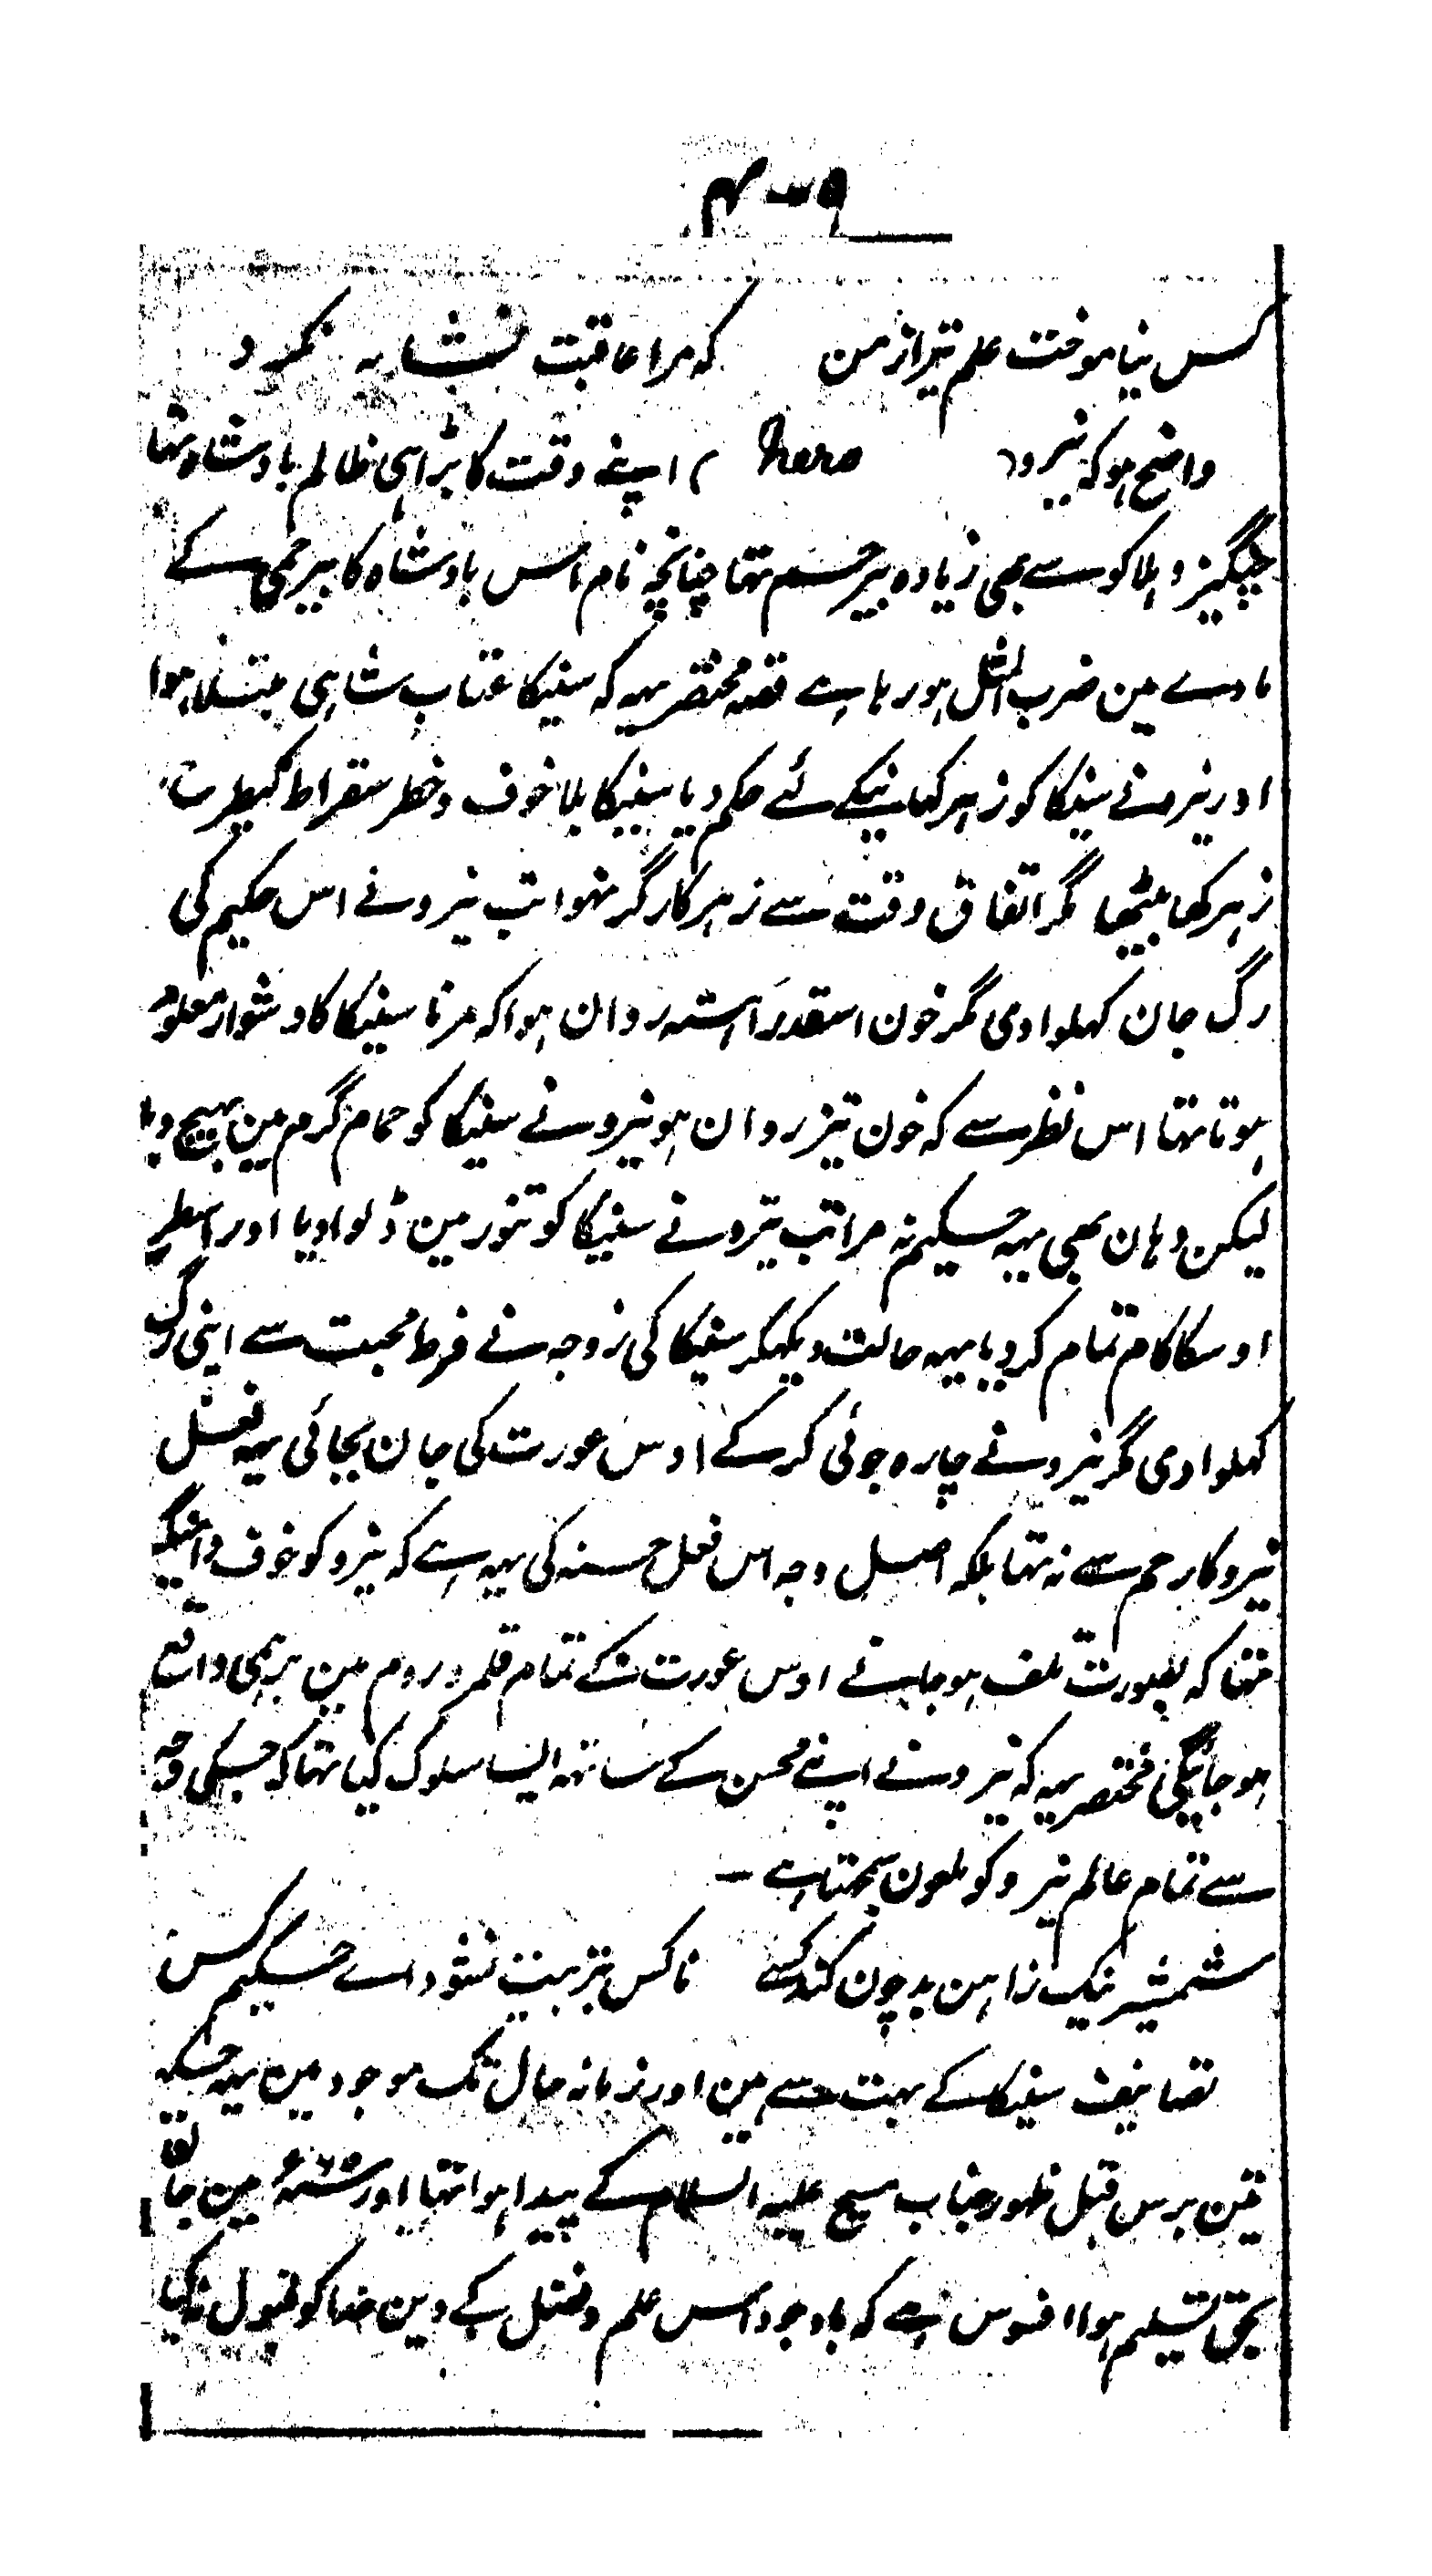 کس نیاموخت علم تیر از من کہ مرا عاقبت نشانہ نکرد
واضح ہو کہ نیرو ( nero ) اپنے وقت کا بڑا ہی ظالم بادشاہ تہا
چنگیز و ہلاکو سے بھی زیادہ بیرحم تہا چنانچہ نام اس بادشاہ کا بیرحمی کے
مادے مین ضرب المثل ہو رہا ہے قصہ مختصر یہہ کہ سنیکا عتاب شاہی مبتلا ہوا
اور نیرو نے سنیکا کو زہر کہا نیکے لئے حکم دیا سنیکا بلا خوف و خطر سقراط کیطرح
زہر کھا بیٹھا مگر اتفاق وقت سے زہر کارگر نہوا تب نیرو نے اس حکیم کی
رگ جان کہلوا دی مگر خون اسقدر آہستہ روان ہوا کہ مرنا سنیکا کا دشوار معلوم
ہوتا تہا اس نظر سے کہ خون تیز روان ہو نیرو نے سنیکا کو حمام گرم مین بہیج دیا
لیکن وہان بھی یہہ حکیم نہ مرا تب نیرو نے سنیکا کو تنور مین ڈلوا دیا اور اسطرح
اوسکا کام تمام کر دیا یہہ حالت دیکہکر سنیکا کی زوجہ نے فرط محبت سے اپنی رگ
کہلوا دی مگر نیرو نے چارہ جوئی کر کے اوس عورت کی جان بچائی یہہ فعل
نیرو کا رحم سے نہ تہا بلکہ اصل وجہ اس فعل حسنہ کی یہہ ہے کہ نیرو کو خوف دامنگیر
تہا کہ بصورت تلف ہو جانے اوس عورت کے تمام قلمرو روم مین برہمی واقع
ہو جائیگی مختصر یہہ کہ نیرو نے اپنے محسن کے ساتہہ ایسا سلوک کیا تہا کہ جسکی وجہ
سے تمام عالم نیرو کو ملعون سمجہتا ہے ـ
شمشیر نیک ز آہن بد چون کند کسے ناکس بتربیت نشود اے حکیم کس
تصانیف سنیکا کے بہت سے ہین اور زمانہ حال تک موجود ہین یہہ حکیم
تین برس قبل ظہور جناب مسیح علیہ السلام کے پیدا ہوا تہا اور مین جان
بحق تسلیم ہوا افسوس ہے کہ باوجود اس علم و فضل کے دین خدا کو قبول نہ کیا